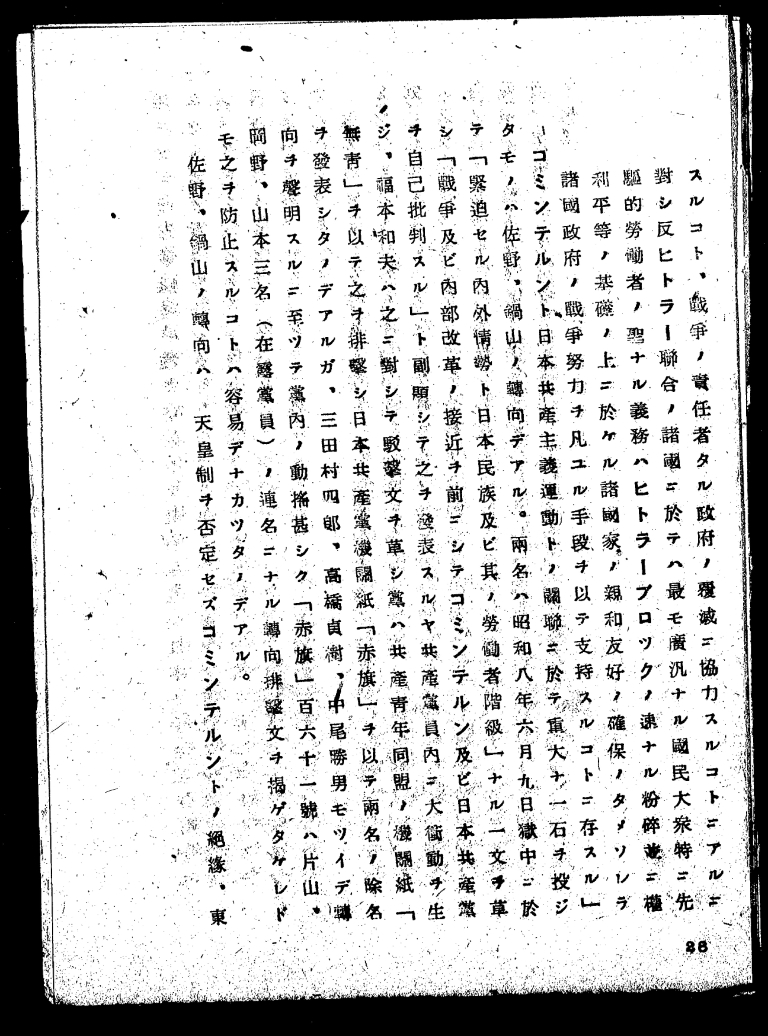 スルコト、戰爭ノ責任者タル政府ノ覆滅ニ協力スルコトニアルニ
對シ反ヒトラー聯合ノ諸國ニ於テハ最モ廣汎ナル國民大衆特ニ先
驅的勞働者ノ聖ナル義務ハヒトラーブロツクノ速ナル粉碎竝ニ權
利平等ノ基礎ノ上ニ於ケル諸國家ノ親和友好ノ確保ノタメソレラ
諸國政府ノ戰爭努力ヲ凡ユル手段ヲ以テ支持スルコトニ存スル」
「コミンテルント日本共產主義運動トノ關聯ニ於テ重大ナ一石ヲ投ジ
タモノハ佐野、鍋山ノ轉向デアル。兩名ハ昭和八年六月九日獄中ニ於
テ「緊迫セル內外情勢ト日本民族及ビ其ノ勞働者階級」ナル一文ヲ草
シ「戰爭及ビ內部改革ノ接近ヲ前ニシテコミンテルン及ビ日本共產黨
ヲ自己批判スル」ト副題シテ之ヲ發表スルヤ共產黨員內ニ大衝動ヲ生
ジ、福本和夫ハ之ニ對シテ駁擊文ヲ草シ黨ハ共產靑年同盟ノ機關紙「
無靑」ヲ以テ之ヲ排擊シ日本共產黨機關紙「赤旗」ヲ以テ兩名ノ除名
ヲ發表シタノデアルガ、三田村四郞、高橋貞樹、中尾勝男モツイデ轉
向ヲ聲明スルニ至ツテ黨內ノ動搖甚シク「赤旗」百六十一號ハ片山、
岡野、山本三名（在露黨員）ノ連名ニナル轉向排擊文ヲ揭ゲタケレド
モ之ヲ防止スルコトハ容易デナカツタノデアル。
佐野、鍋山ノ轉向ハ、天皇制ヲ否定セズコミンテルントノ絕緣、東
26